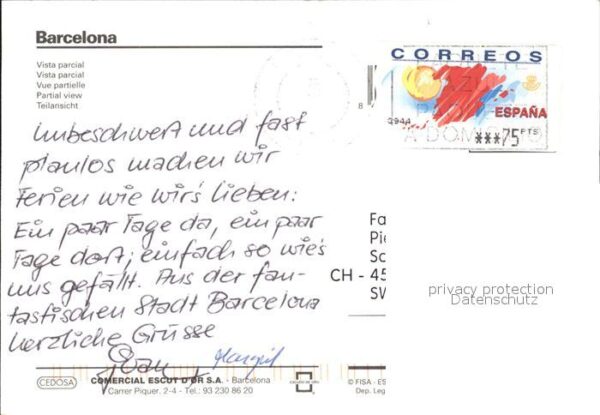 Barcelona
Vista parcial
Vista parcial
Vue partielle
Partial view
Teilansicht
CORREOS
ESPAÑA
***75 PTS
unbeschwert und fast
planlos machen wir
Ferien wie wir's lieben:
Ein paar Tage da, ein paar
Tage dort; einfach so wie's
uns gefällt. Aus der fan-
tastischen Stadt Barcelona
herzliche Grüsse
Margrit
Fa
Pie
Sc
CH - 45
SW
privacy protection
Datenschutz
CEDOSA
COMERCIAL ESCUT D'OR S.A. - Barcelona
Carrer Piquer, 2-4 - Tel.: 93 230 86 20
© FISA - ES
Dep. Leg